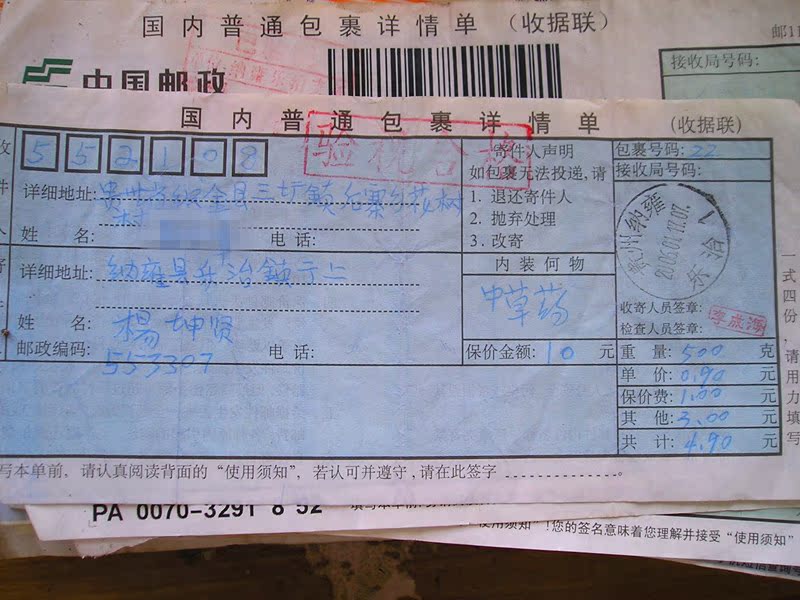 国内普通包裹详情单 (收据联)
中国邮政
接收局号码:
国内普通包裹详情单 (收据联)
验视合格
552108
寄件人声明
包裹号码: 22
如包裹无法投递,请
接收局号码:
详细地址: 贵州省织金县三圹鎮
1. 退还寄件人
村
2. 抛弃处理
姓 名: 电话:
3. 改寄
贵州纳雍
2005.01.11.07.
乐治
详细地址: 纳雍县乐治鎮
内装何物
中草药
收寄人员签章:
检查人员签章:
姓 名: 楊坤贤
邮政编码: 553307 电话:
保价金额: 10 元
重 量: 500 克
单 价: 0.90 元
保价费: 1.00 元
其 他: 3.00 元
共 计: 4.90 元
一式四份,请用力填写
写本单前,请认真阅读背面的“使用须知”,若认可并遵守,请在此签字
PA 0070-3291 8 52
“使用须知”!您的签名意味着您理解并接受“使用须知”